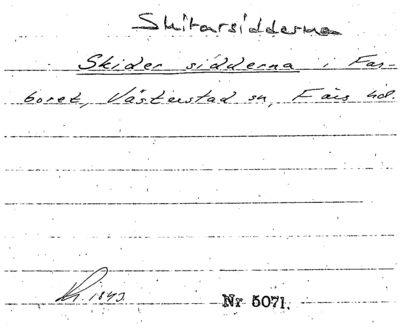 Skitarsidderna
Skider sidderna i Far-
boret, Västerstad sn, Färs hd.
1843.
Nr 5071.